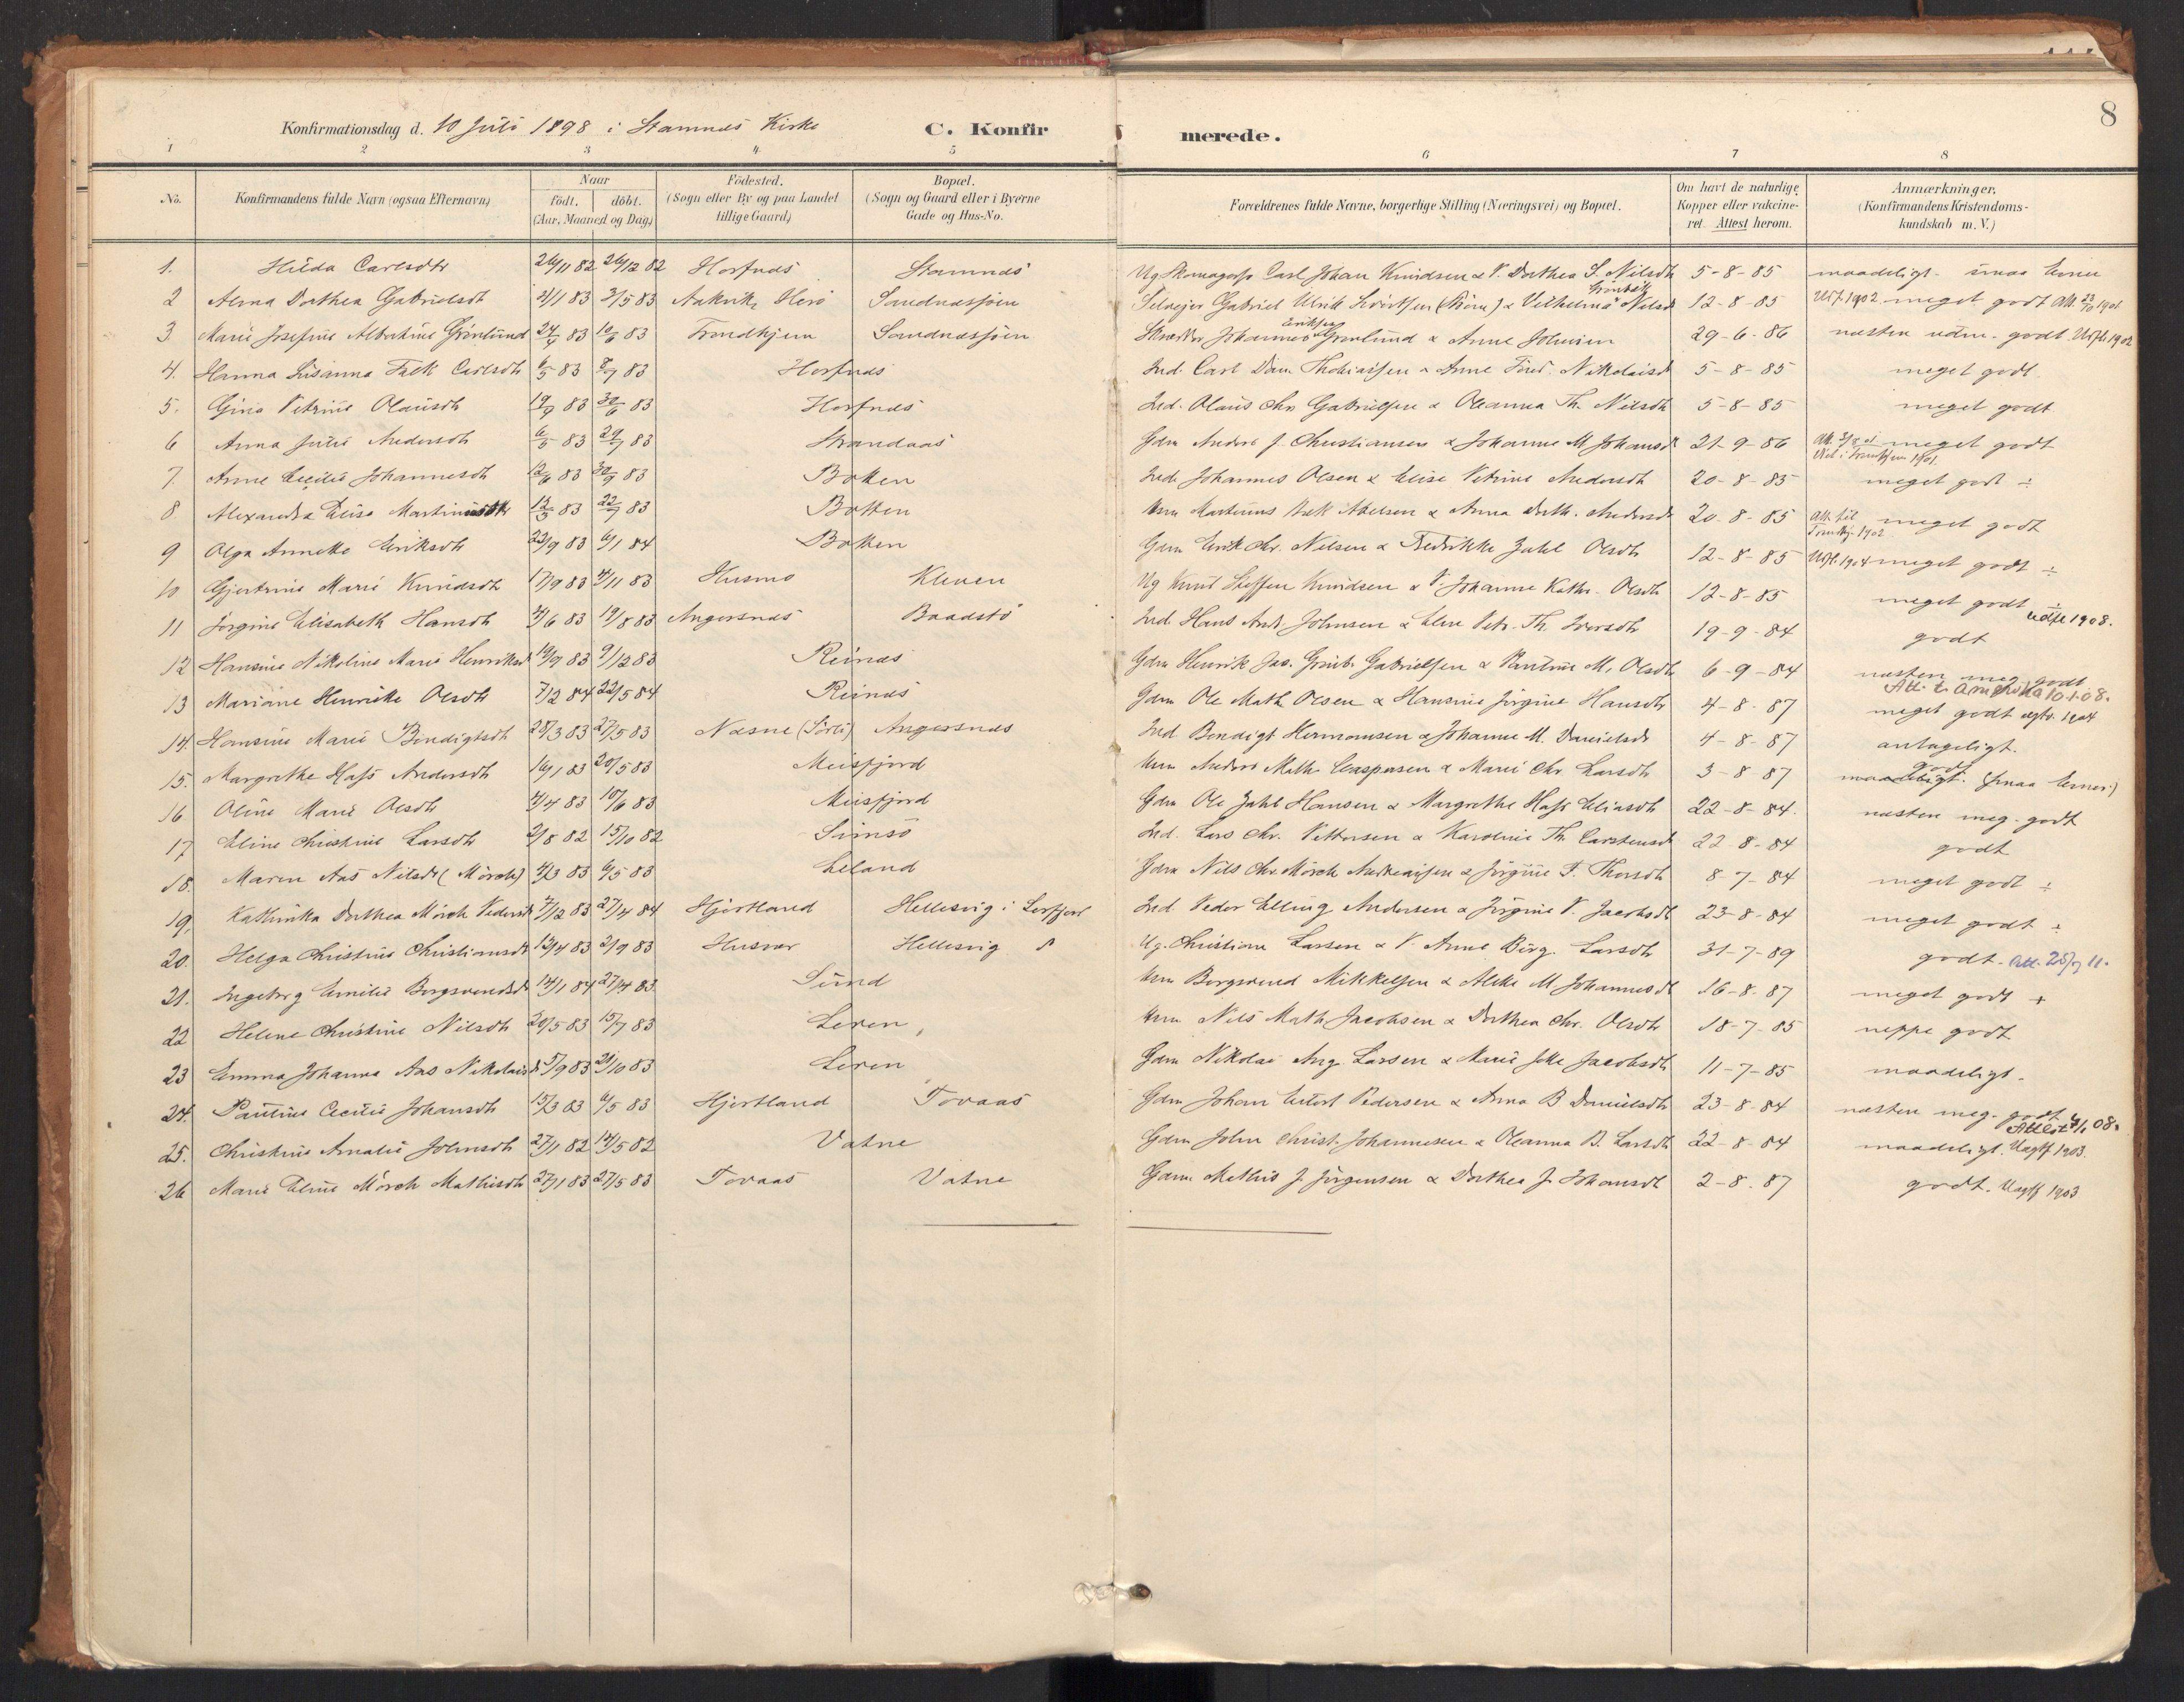 8
Konfirmationsdag d. 10 Juli 1898 i Stamnes Kirke C. Konfirmerede.
1 2 3 4 5 6 7 8
No. Konfirmandens fulde Navn (ogsaa Efternavn) Naar födt. döbt. (Aar, Maaned og Dag) Födested. (Sogn eller By og paa Landet tillige Gaard) Bopæl. (Sogn og Gaard eller i Byerne Gade og Hus-No. Forældrenes fulde Navne, borgerlige Stilling (Næringsvei) og Bopæl. Om havt de naturlige Kopper eller vakcineret. Attest herom. Anmærkninger, (Konfirmandens Kristendomskundskab m. V.)
1. Hilda Carlsdtr 26/11 82 26/12 82 Horfnes Stamnes Ug Carl Johan Knudsen & P. Dorthea S. Nilsdtr 5-8-85 maadeligt. smaa Evner
2 Alma Dorthea Gabrielsdt 83 3/5 83 Herö Sandnessjøen Gabriel Ulrik & Vilhelmine Nilsd 12-8-85 Udf. 1902 meget godt Att. 1901
3. Marie Josefine Albertine Grönlund 83 83 Trondhjem Sandnessjøen Johannes Eriksen Grønlund & Anne Johnsen 29-6-86 næsten udm. godt. Udfl. 1902
4. Hanna Susanna Falk Carlsdtr 6/5 83 8/7 83 Horfnes Ind. Carl Dan. Thobiassen & Anne Nikolaisd 5-8-85 meget godt.
5. Gina Petrine Olausdtr 83 83 Horfnes Ind. Olaus Chr. Gabrielsen & Oleanna Th. Nilsdtr 5-8-85 meget godt
6 Anna Julie Andersdtr 6/5 83 29/7 83 Strandaas Gdm Anders J. Christiansen & Johanne M Johansd 21-9-86 meget godt
7. Anne Cecilie Johannesdtr 83 30/9 83 Botten Ind. Johannes Olsen & Elise Petrine Andersdtr 20-8-85 meget godt ÷
8 Alexandra Elise Martinusdtr 83 22/7 83 Botten Martinus Abelsen & Anna Doth. Andersdr 20-8-85 Att. til Trondhj. 1902 meget godt
9 Olga Annette Eriksdtr 23/9 83 6/1 84 Botten Gdm Erik Chr. Nilsen & Fredrikke Zahl Olsdtr 12-8-85 Udfl. 1904 meget godt ÷
10 Gjertrine Marie Knudsdtr 17/9 83 4/11 83 Husmo Kleven Ug Knud Steffen Knudsen & P. Johanne Kathr. Olsdtr 12-8-85 meget godt ÷
11 Jorgine Elisabeth Hansdtr 83 19/8 83 Angersnes Baadstö Ind Hans Andr. Johnsen & Elen Petr. Th. Iversdtr 19-9-84 godt udfl 1908.
12 Hansine Nikoline Marie Henriksd 19/9 83 9/12 83 Reines Gdm Henrik Jac. Gabrielsen & Pauline M. Olsdtr 6-9-84 næsten meg. godt
13 Mariane Henrikke Olsdtr 7/2 84 22/5 84 Reines Gdm Ole Math. Olsen & Hansine Jörgine Hansdtr 4-8-87 Att. t. Amerika 10.1.08. meget godt 1904
14. Hansine Marie Bendigtsdt 28/3 83 27/5 83 Nesne (Sörli) Angersnes Ind Bendigt Hermansen & Johanne M. Danielsdr 4-8-87 antageligt.
15. Margrethe Hass Andersdtr 16/1 83 20/5 83 Meisfjord Anders Math. Caspersen & Marie Chr. Larsdtr 3-8-87 godt maadeligt. (smaa Evner)
16 Oline Marie Olsdtr 4/4 83 10/6 83 Meisfjord Gdm Ole Zahl Hansen & Margrethe Hass Eliasdtr 22-8-84. næsten meg. godt
17 Eline Christine Larsdtr 82 15/10 82 Simsö Ind. Lars Chr. Pettersen & Karoline Th. Carstensd 22-8-84 godt
18. Maren Aas Nilsdr (Mörch) 4/3 83 6/5 83 Leland Gdm Nils Chr. Mörch Andreassen & Jörgine F. Thorsdtr 8-7-84 meget godt ÷
19. Kathinka Dorthea Mörch Pedersd 7/12 83 27/4 84 Hjortland Hellesvig i Leirfjord Ind Peder Elling Andersen & Jörgine P. Jacobsdt 23-8-84 meget godt ÷
20. Helga Christine Christiansdt 13/4 83 2/9 83 Husvær Hellesvig Ug. Christian Larsen & P. Anne Birg. Larsdtr 31-7-89 godt. Att. 11.
21. Ingeborg Emilie Borgsvendsd 14/1 84 27/4 83 Sund Borgsvend Mikkelsen & Aleke M Johannesdt 16-8-87 meget godt +
22 Helene Christine Nilsdtr 20/5 83 15/7 83 Leren Nils Math Jacobsen & Dorthea Chr. Olsdtr 18-7-85 neppe godt
23 Emma Johanna Aas Nikolaisd 5/9 83 21/10 83 Leren Gdm Nikolai Ang Larsen & Marie Jacobsdtr 11-7-85 maadeligt.
24. Pauline Cecilie Johansdtr 15/3 83 6/5 83 Hjortland Tovaas Gdm Johan Pedersen & Anna B Danielsdtr 23-8-84 næsten meg. godt
25. Christine Amalie Johnsdtr 27/1 82 14/5 82 Vatne Gdm John Christ. Johannesen & Oleanna B. Larsdt 22-8-84 maadeligt. 1903.
26 Marie Eline Mörch Mathisdtr 27/1 83 27/5 83 Tovaas Vatne Gdm Mathis J. Jörgensen & Dorthea J. Johansdt 2-8-87 godt. 1903